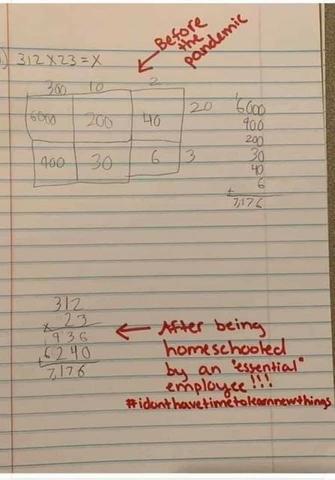 1) 312 x 23 = x
Before
the
pandemic
300 10 2
6000 200 40 20
900 30 6 3
6000
900
200
30
40
+ 6
7,176
312
x 23
936
+6240
7,176
← After being
homeschooled
by an "essential"
employee!!!
#idonthavetimetolearnnewthings